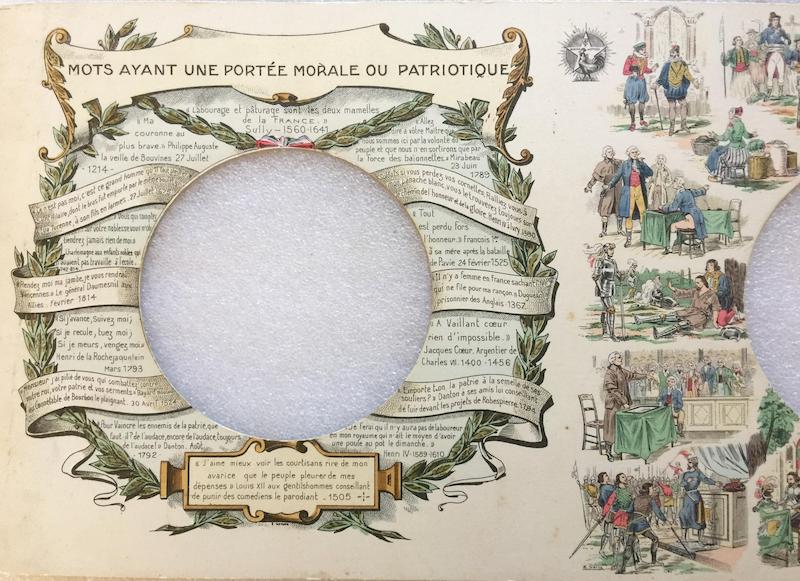 MOTS AYANT UNE PORTÉE MORALE OU PATRIOTIQUE
« Labourage et pâturage sont les deux mamelles
de la FRANCE. »
Sully - 1560-1641
« Ma
couronne au
plus brave. » Philippe Auguste
la veille de Bouvines 27 Juillet
- 1214 -
« Allez
dire à votre Maître que
nous sommes ici par la volonté du
peuple et que nous n'en sortirons que par
la force des baïonnettes. » Mirabeau
23 Juin
1789
n'est pas moi, c'est ce grand homme qu'il faut
dont le bras fut emporté par le même boulet
Turenne, à son fils en larmes. 27 Juillet
si vous perdez vos cornettes, Ralliez vous à
panache blanc, vous le trouverez toujours sur
chemin de l'honneur et de la gloire. Henri IV à Ivry 1590
tiendrez jamais rien de moi »
Charlemagne aux enfants nobles qui
n'avaient pas travaillé à l'école.
« Tout
est perdu fors
l'honneur. » François Ier
à sa mère après la bataille
de Pavie 24 février 1525
« Rendez moi ma jambe, je vous rendrai
Vincennes » Le général Daumesnil aux
Alliés. février 1814
Il n'y a femme en France sachant
qui ne file pour ma rançon. » Duguesclin
prisonnier des Anglais 1367
« Si j'avance, Suivez moi;
Si je recule, tuez moi;
Si je meurs, vengez moi »
Henri de la Rochejaquelein
Mars 1793
« A Vaillant cœur
rien d'impossible. »
Jacques Cœur, Argentier de
Charles VII. 1400-1456
Monsieur j'ai pitié de vous qui combattez contre
votre roi, votre patrie et vos serments » Bayard
au Connétable de Bourbon le plaignant. 30 Avril 1524
Emporte t.on la patrie à la semelle de ses
souliers? » Danton à ses amis lui conseillant
de fuir devant les projets de Robespierre. 1794
Pour Vaincre les ennemis de la patrie, que
faut-il? de l'audace, encore de l'audace, toujours
de l'audace! » Danton. Août
1792
Je ferai qu'il n'y aura pas de laboureur
en mon royaume qui n'ait le moyen d'avoir
une poule au pot le dimanche. »
Henri IV-1589-1610
« J'aime mieux voir les courtisans rire de mon
avarice que le peuple pleurer de mes
dépenses » Louis XII aux gentilshommes conseillant
de punir des comédiens le parodiant - 1505